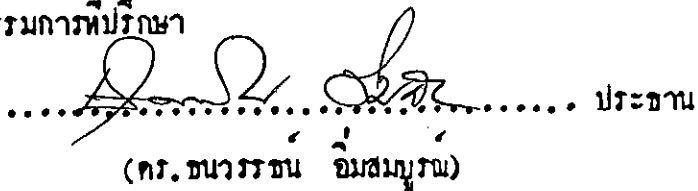 รรมการที่ปรึกษา
ประธาน
(ดร.ธนวรรธน์ อิ่มสมบูรณ์)